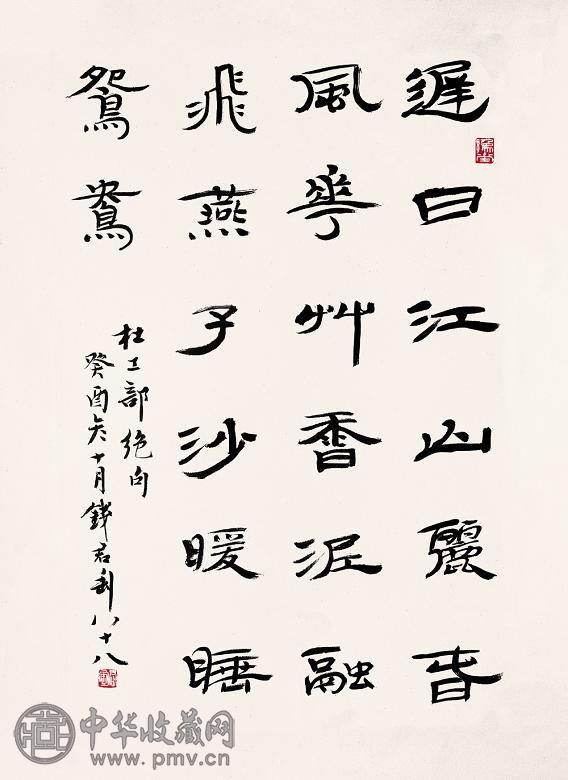 遲日江山麗春
風華艸香泥融
飛燕子沙暖睡
鴛鴦
杜工部絕句
癸酉冬十月錢君匋八十八
中华收藏网
www.pmv.cn